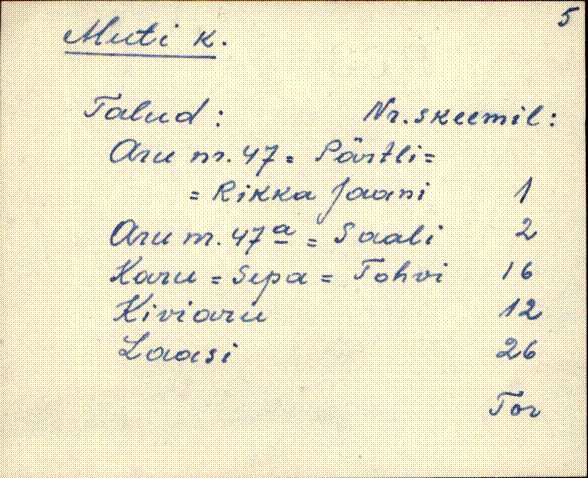 5
Muti k.
Talud: Nr. skeemil:
Aru nr. 47 = Pärtli =
= Rikka Jaani 1
Aru nr. 47a = Saali 2
Karu = Sepa = Tohvi 16
Kiviaru 12
Laasi 26
Tor